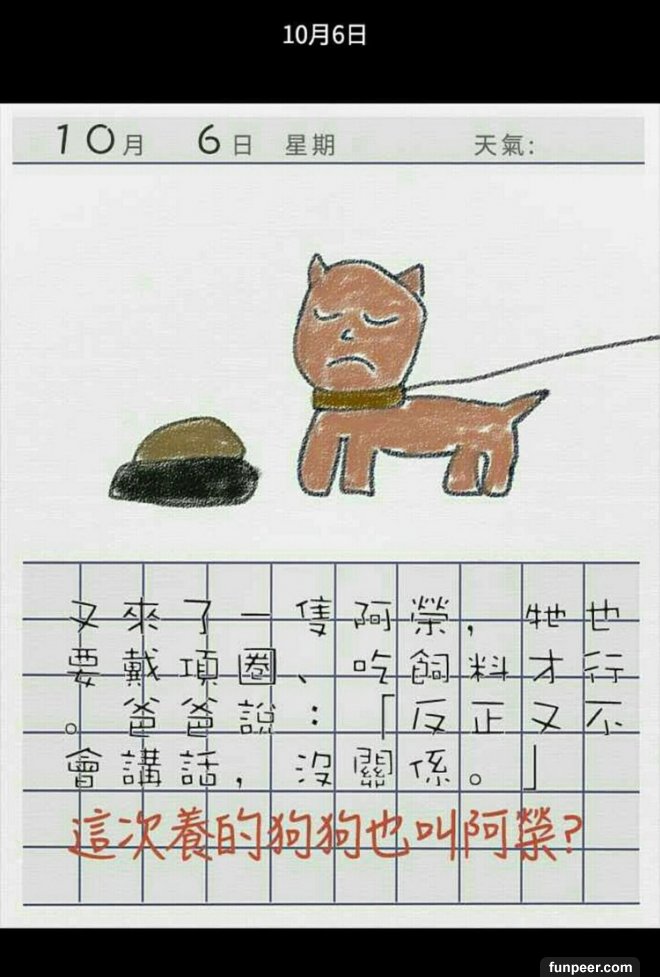 10月6日
10月 6日 星期 天氣:
又來了一隻阿榮，牠也
要戴項圈、吃飼料才行
。爸爸說：「反正又不
會講話，沒關係。」
這次養的狗狗也叫阿榮?
funpeer.com